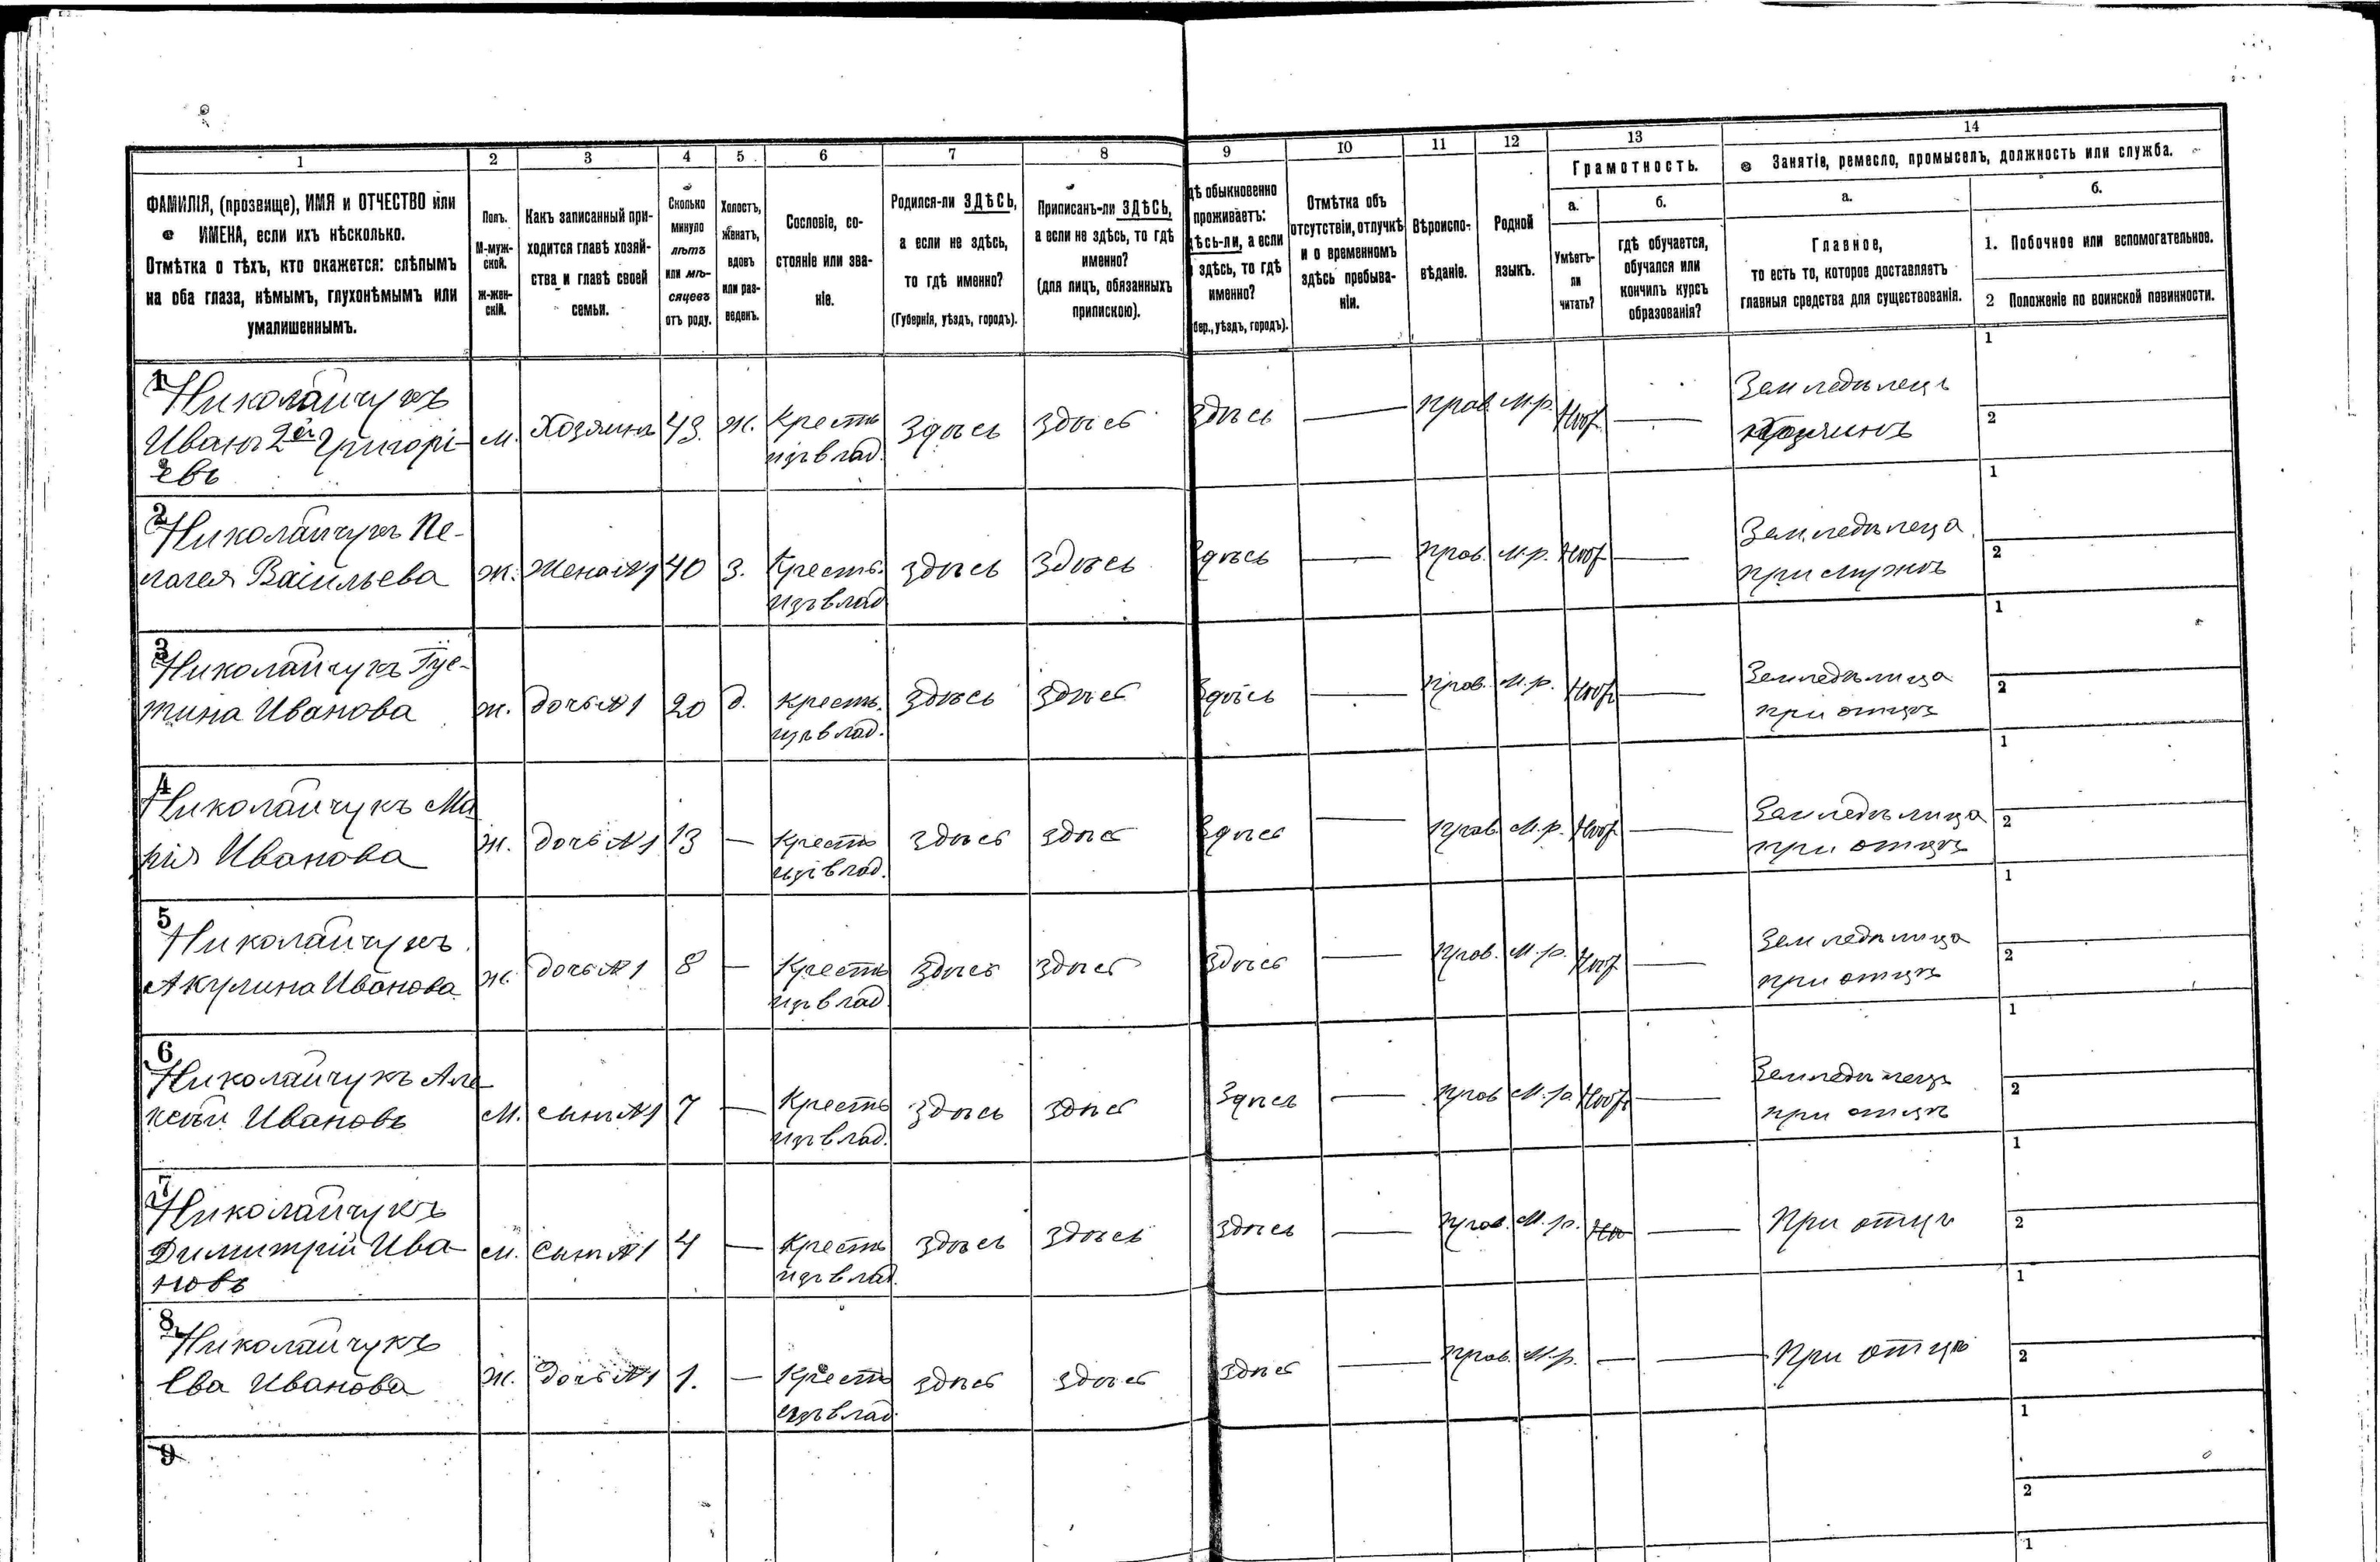 1 2 3 4 5 6 7 8 9 10 11 12 13 14
ФАМИЛІЯ, (прозвище), ИМЯ и ОТЧЕСТВО или
ИМЕНА, если ихъ нѣсколько.
Отмѣтка о тѣхъ, кто окажется: слѣпымъ
на оба глаза, нѣмымъ, глухонѣмымъ или
умалишеннымъ.
Полъ.
М-муж-
ской.
ж-жен-
скій.
Какъ записанный при-
ходится главѣ хозяй-
ства и главѣ своей
семьи.
Сколько
минуло
лѣтъ
или мѣ-
сяцевъ
отъ роду.
Холостъ,
женатъ,
вдовъ
или раз-
веденъ.
Сословіе, со-
стояніе или зва-
ніе.
Родился-ли ЗДѢСЬ,
а если не здѣсь,
то гдѣ именно?
(Губернія, уѣздъ, городъ).
Приписанъ-ли ЗДѢСЬ,
а если не здѣсь, то гдѣ
именно?
(для лицъ, обязанныхъ
припискою).
дѣ обыкновенно
проживаетъ:
ѣсь-ли, а если
здѣсь, то гдѣ
именно?
бер., уѣздъ, городъ).
Отмѣтка объ
отсутствіи, отлучкѣ
и о временномъ
здѣсь пребыва-
ніи.
Вѣроиспо-
вѣданіе.
Родной
языкъ.
Грамотность.
а.
Умѣетъ-
ли
читать?
б.
гдѣ обучается,
обучался или
кончилъ курсъ
образованія?
Занятіе, ремесло, промыселъ, должность или служба.
а.
Главное,
то есть то, которое доставляетъ
главныя средства для существованія.
б.
1. Побочное или вспомогательное.
2 Положеніе по воинской повинности.
1
Николайчукъ
Иванъ 2й Григорі-
евъ
м. Хозяинъ 43. ж. Кресть
изъ влад.
здѣсь здѣсь здѣсь — прав. м.р. —
Земледѣлецъ
хозяинъ
1
2
2
Николайчукъ Пе-
лагея Васильева
ж. Жена №1 40 з. Кресть.
изъ влад
здѣсь здѣсь здѣсь — прав. м.р. —
при мужѣ
1
2
3
Николайчукъ Гус-
тина Иванова
ж. дочь №1 20 д. Кресть.
изъ влад.
здѣсь здѣсь здѣсь — прав. м.р. —
Земледѣлица
при отцѣ
1
2
4
Николайчукъ Ма
рія Иванова
ж. дочь №1 13 — Кресть
изъ влад.
здѣсь здѣсь здѣсь — прав. м.р. —
Земледѣлица
при отцѣ
1
2
5
Николайчукъ
Акулина Иванова
ж. дочь №1 8 — Кресть
изъ влад.
здѣсь здѣсь здѣсь — прав. м.р. —
Земледѣлица
при отцѣ
1
2
6
Николайчукъ Але
ксѣй Ивановъ
м. сынъ №1 7 — Кресть
изъ влад.
здѣсь здѣсь здѣсь — прав м.р. —
Земледѣлецъ
при отцѣ
1
2
7
Николайчукъ
Димитрій Ива-
новъ
м. Сынъ №1 4 — Кресть
изъ влад.
здѣсь здѣсь здѣсь — прав. м.р. —
При отцѣ
1
2
8
Николайчукъ
Ева Иванова
ж. Дочь №1 1. — Кресть
изъ влад.
здѣсь здѣсь здѣсь — прав. м.р. — —
При отцѣ
1
2
9
1
2
1